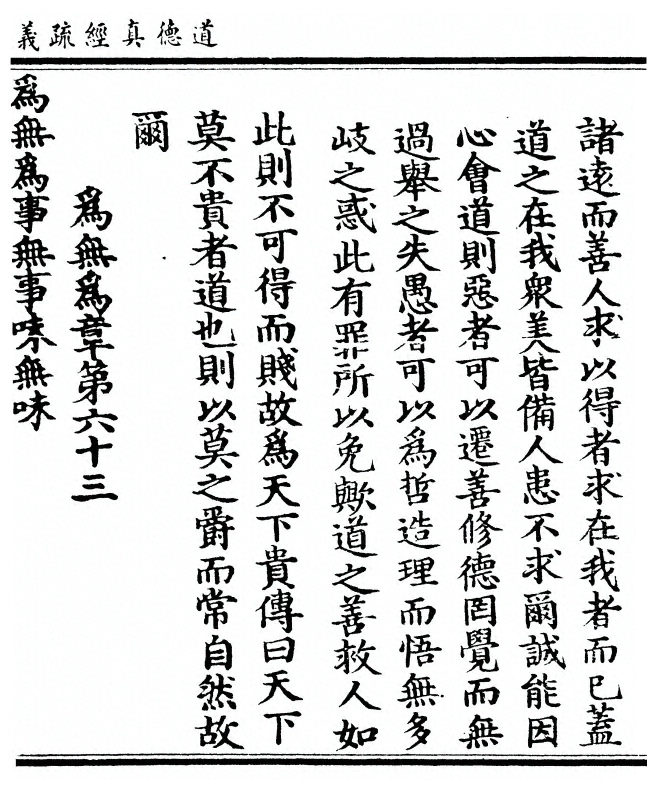 道德真經疏義
諸遠而善人求以得者求在我者而已蓋
道之在我衆美皆備人患不求爾誠能因
心會道則惡者可以遷善修德罔覺而無
過舉之失愚者可以爲哲造理而悟無多
岐之惑此有罪所以免歟道之善救人如
此則不可得而賤故爲天下貴傳曰天下
莫不貴者道也則以莫之爵而常自然故
爾
爲無爲章第六十三
爲無爲事無事味無味